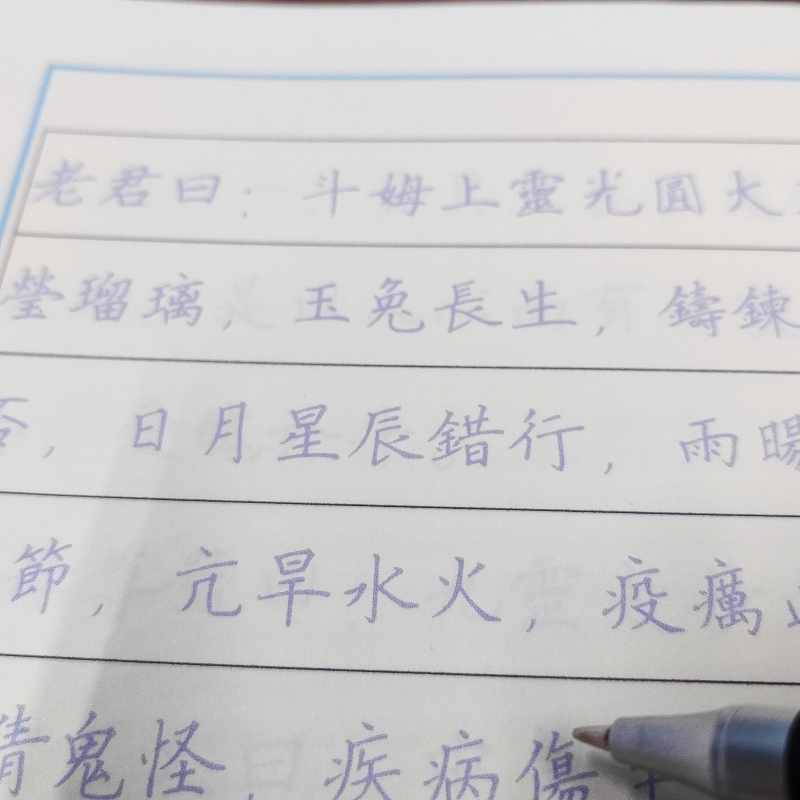 老君曰：斗姆上靈光圓大
瑩瑠璃，玉兔長生，鑄鍊
，日月星辰錯行，雨暘
節，亢旱水火，疫癘
鬼怪，疾病傷